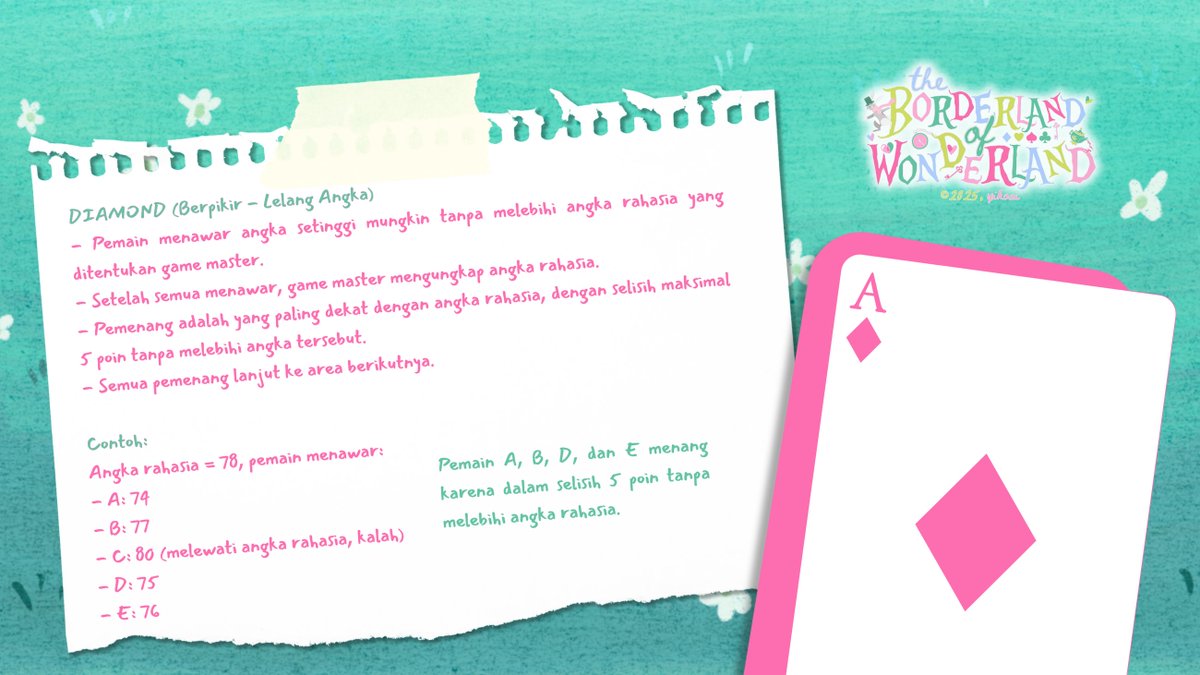 the
BORDERLAND
of
WONDERLAND
©2025,
DIAMOND (Berpikir – Lelang Angka)
– Pemain menawar angka setinggi mungkin tanpa melebihi angka rahasia yang
ditentukan game master.
– Setelah semua menawar, game master mengungkap angka rahasia.
– Pemenang adalah yang paling dekat dengan angka rahasia, dengan selisih maksimal
5 poin tanpa melebihi angka tersebut.
– Semua pemenang lanjut ke area berikutnya.
Contoh:
Angka rahasia = 78, pemain menawar:
– A: 74
– B: 77
– C: 80 (melewati angka rahasia, kalah)
– D: 75
– E: 76
Pemain A, B, D, dan E menang
karena dalam selisih 5 poin tanpa
melebihi angka rahasia.
A